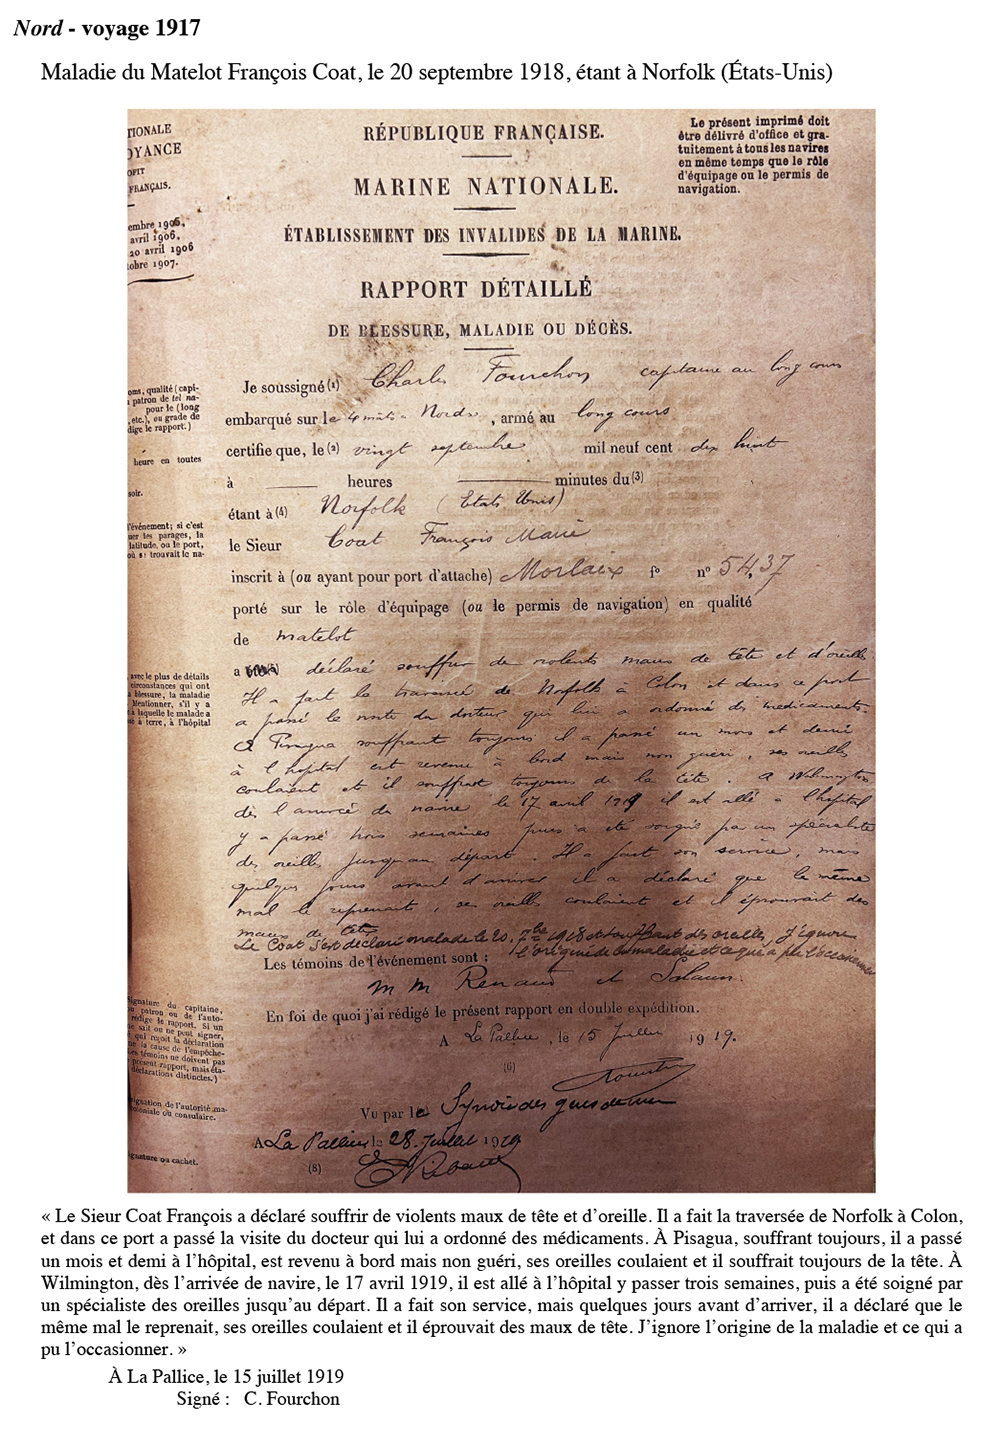 Nord - voyage 1917
Maladie du Matelot François Coat, le 20 septembre 1918, étant à Norfolk (États-Unis)
TIONALE
OYANCE
OFIT
FRANÇAIS.
embre 1905,
avril 1906,
20 avril 1906
tobre 1907.
RÉPUBLIQUE FRANÇAISE.
MARINE NATIONALE.
ÉTABLISSEMENT DES INVALIDES DE LA MARINE.
Le présent imprimé doit
être délivré d'office et gra-
tuitement à tous les navires
en même temps que le rôle
d'équipage ou le permis de
navigation.
RAPPORT DÉTAILLÉ
DE BLESSURE, MALADIE OU DÉCÈS.
oms, qualité (capi-
patron de tel na-
pour le (long
, etc.), ou grade de
dige le rapport.)
heure en toutes
soir.
l'événement; si c'est
uer les parages, la
latitude, ou le port,
où s: trouvait le na-
avec le plus de détails
circonstances qui ont
a blessure, la maladie
Mentionner, s'il y a
à laquelle le malade a
né à terre, à l'hôpital
Je soussigné (1) Charles Fourchon capitaine au long cours
embarqué sur le 4 mâts Nord, armé au long cours
certifie que, le (2) vingt septembre mil neuf cent dix huit
à heures minutes du (3)
étant à (4) Norfolk (Etats Unis)
le Sieur Coat François Marie
inscrit à (ou ayant pour port d'attache) Morlaix fo no 5437
porté sur le rôle d'équipage (ou le permis de navigation) en qualité
de matelot
a (5) déclaré souffrir de violents maux de tête et d'oreille.
Il a fait la traversée de Norfolk à Colon et dans ce port
a passé la visite du docteur qui lui a ordonné des médicaments.
A Pisagua souffrant toujours il a passé un mois et demi
à l'hopital est revenu à bord mais non guéri, ses oreilles
coulaient et il souffrait toujours de la tête. A Wilmington
dès l'arrivée du navire le 17 avril 1919 il est allé à l'hopital
y a passé trois semaines puis a été soigné par un spécialiste
des oreilles jusqu'au départ. Il a fait son service, mais
quelques jours avant d'arriver il a déclaré que le même
mal le reprenait, ses oreilles coulaient et il éprouvait des
maux de tête
Le Coat s'est déclaré malade le 20 7bre 1918 et souffrant des oreilles, J'ignore
l'origine de la maladie et ce qui a pu l'occasionner
Les témoins de l'événement sont :
MM Renaud et Salaun.
En foi de quoi j'ai rédigé le présent rapport en double expédition.
A La Pallice, le 15 Juillet 1919.
(6)
Vu par le Syndic des gens de mer
A La Pallice le 28 Juillet 1919
(8)
signature du capitaine,
patron ou de l'auto-
rédige le rapport. Si un
sait ou ne peut signer,
qui reçoit la déclaration
ne la cause de l'empêche-
Les témoins ne doivent pas
présent rapport, mais éta-
déclarations distinctes.)
signation de l'autorité ma-
coloniale ou consulaire.
ignature ou cachet.
« Le Sieur Coat François a déclaré souffrir de violents maux de tête et d'oreille. Il a fait la traversée de Norfolk à Colon,
et dans ce port a passé la visite du docteur qui lui a ordonné des médicaments. À Pisagua, souffrant toujours, il a passé
un mois et demi à l'hôpital, est revenu à bord mais non guéri, ses oreilles coulaient et il souffrait toujours de la tête. À
Wilmington, dès l'arrivée de navire, le 17 avril 1919, il est allé à l'hôpital y passer trois semaines, puis a été soigné par
un spécialiste des oreilles jusqu'au départ. Il a fait son service, mais quelques jours avant d'arriver, il a déclaré que le
même mal le reprenait, ses oreilles coulaient et il éprouvait des maux de tête. J'ignore l'origine de la maladie et ce qui a
pu l'occasionner. »
À La Pallice, le 15 juillet 1919
Signé : C. Fourchon